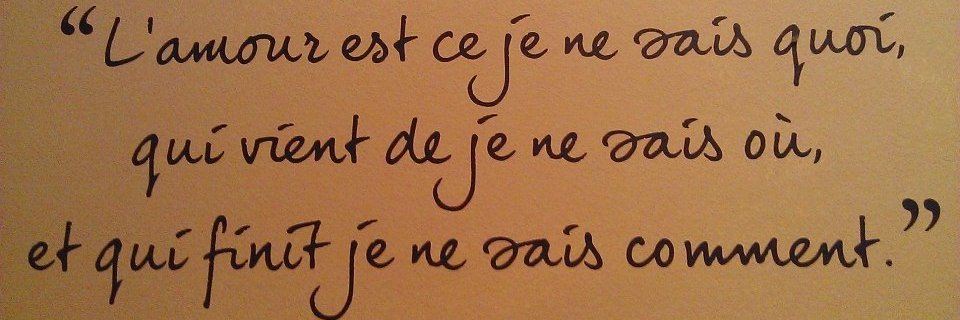 “L'amour est ce je ne sais quoi,
qui vient de je ne sais où,
et qui finit je ne sais comment.”